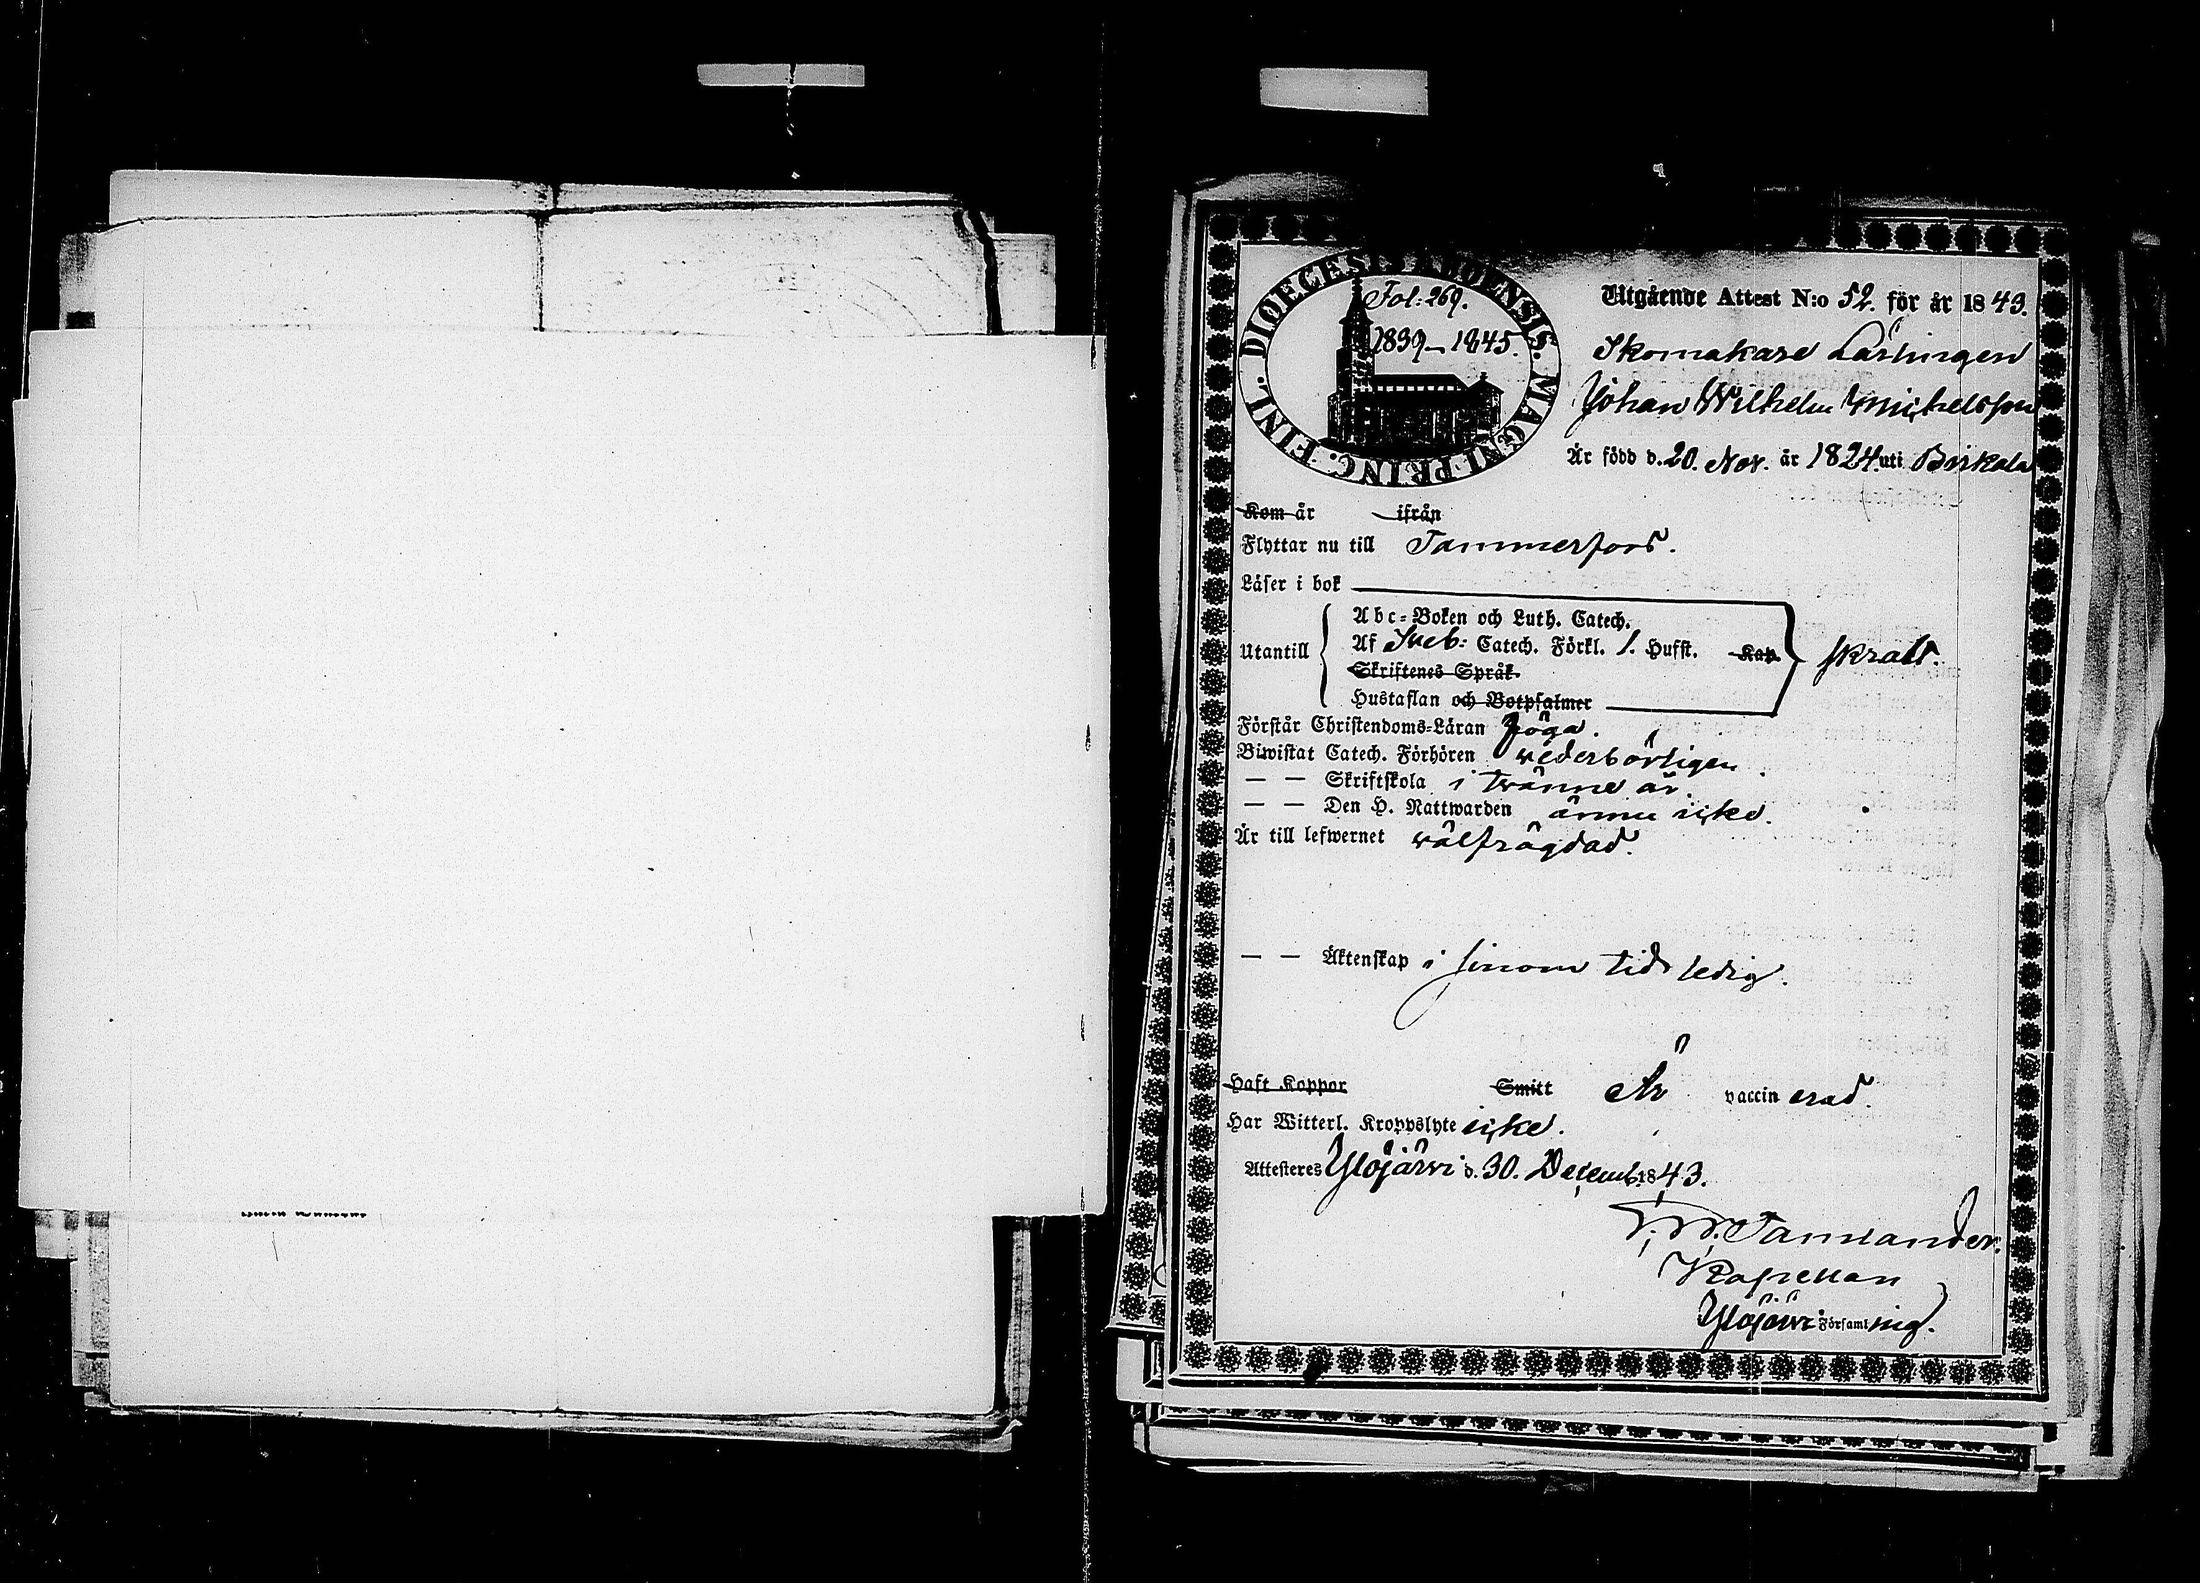 DIOECESIS ABOENSIS. MAGNI PRINC. FINL.
Fol: 269.
1839–1845.
Utgående Attest N:o 52. för år 1843.
Skomakare Lärlingen
Johan Wilhelm Michelsson
Är född d. 20. Nov. år 1824. uti Birkala
Kom år ifrån
Flyttar nu till Tammerfors.
Läser i bok
Abc-Boken och Luth. Catech.
Utantill Af Sveb: Catech. Förkl. 1. Hufst. Kap. skralt.
Skriftenes Språk
Hustaflan och Botpsalmer
Förstår Christendoms-Läran föga.
Biwistat Catech. Förhören wederbörligen.
— — Skriftskola i twänne år.
— — Den H. Nattwarden ännu icke.
Är till lefwernet wälfrägdad.
— — Äktenskap i sinom tid ledig.
Haft Koppor Smitt Är vaccinerad.
Har Witterl. Kroppslyte icke.
Attesteres Ylöjärwi d. 30. Decemb. 1843.
Tamlander.
Kapellan
Ylöjärwi Församlning.